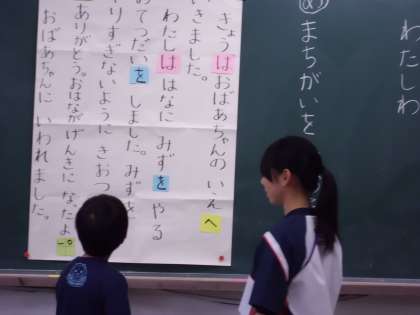 わたしわ
め まちがいを
きょうはおばあちゃんの いえへ
いきました。
わたしは はなに みずを やる
おてつだいを しました。みずを
やりすぎないように きおつ
ありがとう。おはながげんきに なったよ
おばあちゃんに いわれました。